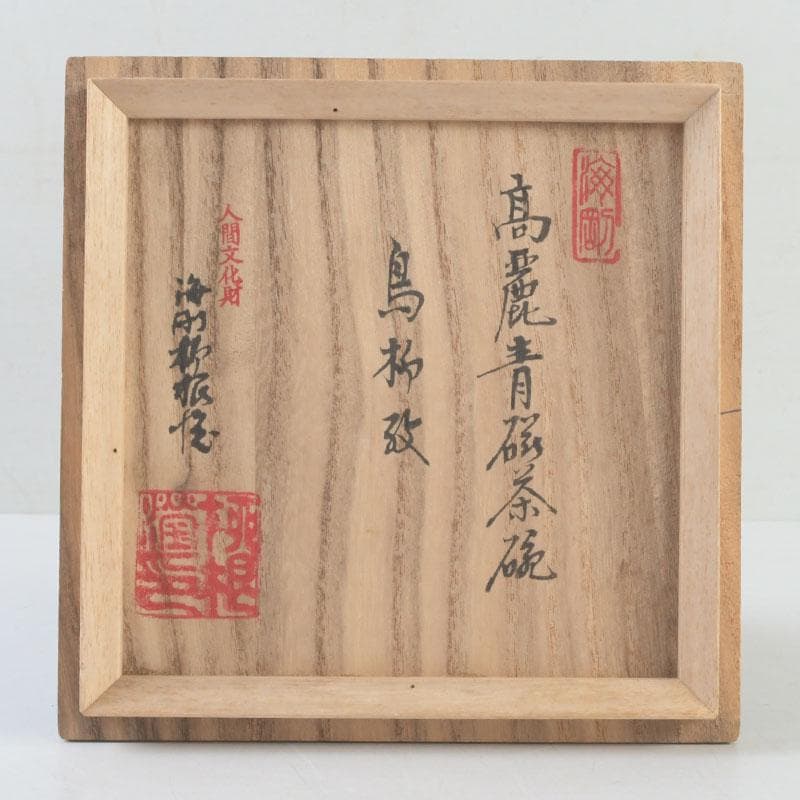 海剛
高麗青磁茶碗
鳥柳文
人間文化財
海剛柳根瀅
柳根瀅印